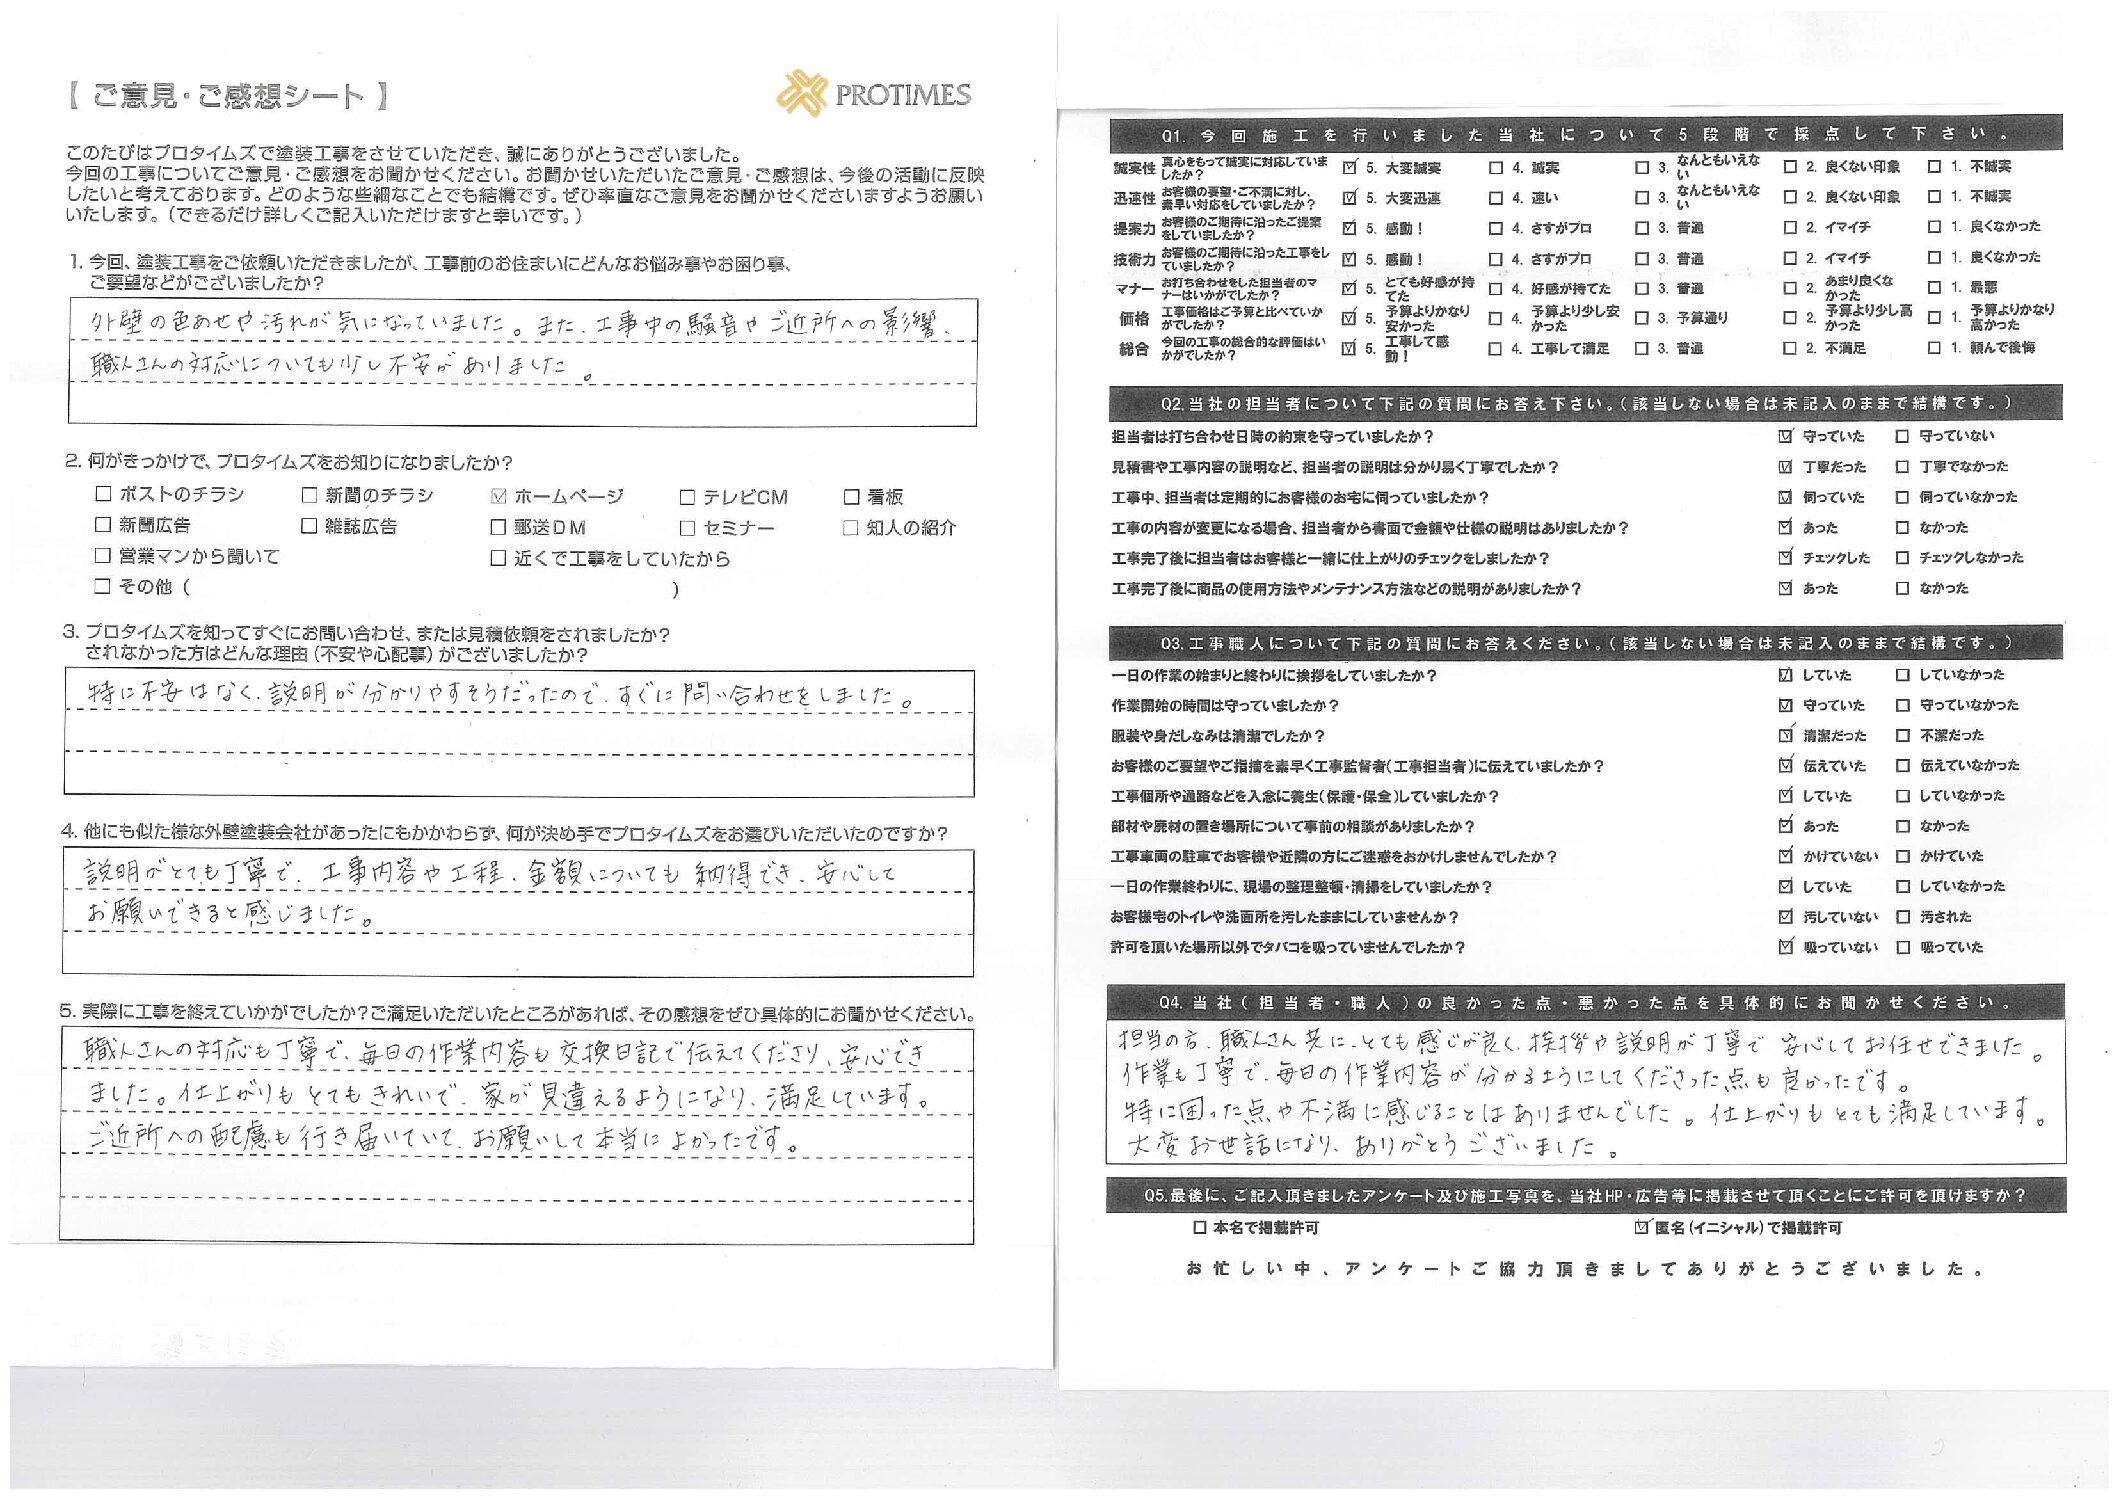 【 ご意見・ご感想シート 】
PROTIMES
このたびはプロタイムズで塗装工事をさせていただき、誠にありがとうございました。
今回の工事についてご意見・ご感想をお聞かせください。お聞かせいただいたご意見・ご感想は、今後の活動に反映
したいと考えております。どのような些細なことでも結構です。ぜひ率直なご意見をお聞かせくださいますようお願い
いたします。（できるだけ詳しくご記入いただけますと幸いです。）
1. 今回、塗装工事をご依頼いただきましたが、工事前のお住まいにどんなお悩み事やお困り事、
ご要望などがございましたか？
外壁の色あせや汚れが気になっていました。また、工事中の騒音やご近所への影響、
職人さんの対応についても少し不安がありました。
2. 何がきっかけで、プロタイムズをお知りになりましたか？
☐ ポストのチラシ ☐ 新聞のチラシ ☑ ホームページ ☐ テレビCM ☐ 看板
☐ 新聞広告 ☐ 雑誌広告 ☐ 郵送DM ☐ セミナー ☐ 知人の紹介
☐ 営業マンから聞いて ☐ 近くで工事をしていたから
☐ その他（ ）
3. プロタイムズを知ってすぐにお問い合わせ、または見積依頼をされましたか？
されなかった方はどんな理由（不安や心配事）がございましたか？
特に不安はなく、説明が分かりやすそうだったので、すぐに問い合わせをしました。
4. 他にも似た様な外壁塗装会社があったにもかかわらず、何が決め手でプロタイムズをお選びいただいたのですか？
説明がとても丁寧で、工事内容や工程、金額についても納得でき、安心して
お願いできると感じました。
5. 実際に工事を終えていかがでしたか？ご満足いただいたところがあれば、その感想をぜひ具体的にお聞かせください。
職人さんの対応も丁寧で、毎日の作業内容も交換日記で伝えてくださり、安心でき
ました。仕上がりもとてもきれいで、家が見違えるようになり、満足しています。
ご近所への配慮も行き届いていて、お願いして本当によかったです。
Q1. 今回施工を行いました当社について5段階で採点して下さい。
誠実性 真心をもって誠実に対応していましたか？ ☑ 5. 大変誠実 ☐ 4. 誠実 ☐ 3. なんともいえない ☐ 2. 良くない印象 ☐ 1. 不誠実
迅速性 お客様の要望・ご不満に対し、素早い対応をしていましたか？ ☑ 5. 大変迅速 ☐ 4. 速い ☐ 3. なんともいえない ☐ 2. 良くない印象 ☐ 1. 不誠実
提案力 お客様のご期待に沿ったご提案をしていましたか？ ☑ 5. 感動！ ☐ 4. さすがプロ ☐ 3. 普通 ☐ 2. イマイチ ☐ 1. 良くなかった
技術力 お客様のご期待に沿った工事をしていましたか？ ☑ 5. 感動！ ☐ 4. さすがプロ ☐ 3. 普通 ☐ 2. イマイチ ☐ 1. 良くなかった
マナー お打ち合わせをした担当者のマナーはいかがでしたか？ ☑ 5. とても好感が持てた ☐ 4. 好感が持てた ☐ 3. 普通 ☐ 2. あまり良くなかった ☐ 1. 最悪
価格 工事価格はご予算と比べていかがでしたか？ ☑ 5. 予算よりかなり安かった ☐ 4. 予算より少し安かった ☐ 3. 予算通り ☐ 2. 予算より少し高かった ☐ 1. 予算よりかなり高かった
総合 今回の工事の総合的な評価はいかがでしたか？ ☑ 5. 工事して感動！ ☐ 4. 工事して満足 ☐ 3. 普通 ☐ 2. 不満足 ☐ 1. 頼んで後悔
Q2. 当社の担当者について下記の質問にお答え下さい。（該当しない場合は未記入のままで結構です。）
担当者は打ち合わせ日時の約束を守っていましたか？ ☑ 守っていた ☐ 守っていない
見積書や工事内容の説明など、担当者の説明は分かり易く丁寧でしたか？ ☑ 丁寧だった ☐ 丁寧でなかった
工事中、担当者は定期的にお客様のお宅に伺っていましたか？ ☑ 伺っていた ☐ 伺っていなかった
工事の内容が変更になる場合、担当者から書面で金額や仕様の説明はありましたか？ ☑ あった ☐ なかった
工事完了後に担当者はお客様と一緒に仕上がりのチェックをしましたか？ ☑ チェックした ☐ チェックしなかった
工事完了後に商品の使用方法やメンテナンス方法などの説明がありましたか？ ☑ あった ☐ なかった
Q3. 工事職人について下記の質問にお答えください。（該当しない場合は未記入のままで結構です。）
一日の作業の始まりと終わりに挨拶をしていましたか？ ☑ していた ☐ していなかった
作業開始の時間は守っていましたか？ ☑ 守っていた ☐ 守っていなかった
服装や身だしなみは清潔でしたか？ ☑ 清潔だった ☐ 不潔だった
お客様のご要望やご指摘を素早く工事監督者（工事担当者）に伝えていましたか？ ☑ 伝えていた ☐ 伝えていなかった
工事個所や通路などを入念に養生（保護・保全）していましたか？ ☑ していた ☐ していなかった
部材や廃材の置き場所について事前の相談がありましたか？ ☑ あった ☐ なかった
工事車両の駐車でお客様や近隣の方にご迷惑をおかけしませんでしたか？ ☑ かけていない ☐ かけていた
一日の作業終わりに、現場の整理整頓・清掃をしていましたか？ ☑ していた ☐ していなかった
お客様宅のトイレや洗面所を汚したままにしていませんか？ ☑ 汚していない ☐ 汚された
許可を頂いた場所以外でタバコを吸っていませんでしたか？ ☑ 吸っていない ☐ 吸っていた
Q4. 当社（担当者・職人）の良かった点・悪かった点を具体的にお聞かせください。
担当の方、職人さん共に、とても感じが良く、挨拶や説明が丁寧で安心してお任せできました。
作業も丁寧で、毎日の作業内容が分かるようにしてくださった点も良かったです。
特に困った点や不満に感じることはありませんでした。仕上がりもとても満足しています。
大変お世話になり、ありがとうございました。
Q5. 最後に、ご記入頂きましたアンケート及び施工写真を、当社HP・広告等に掲載させて頂くことにご許可を頂けますか？
☐ 本名で掲載許可 ☑ 匿名（イニシャル）で掲載許可
お忙しい中、アンケートご協力頂きましてありがとうございました。